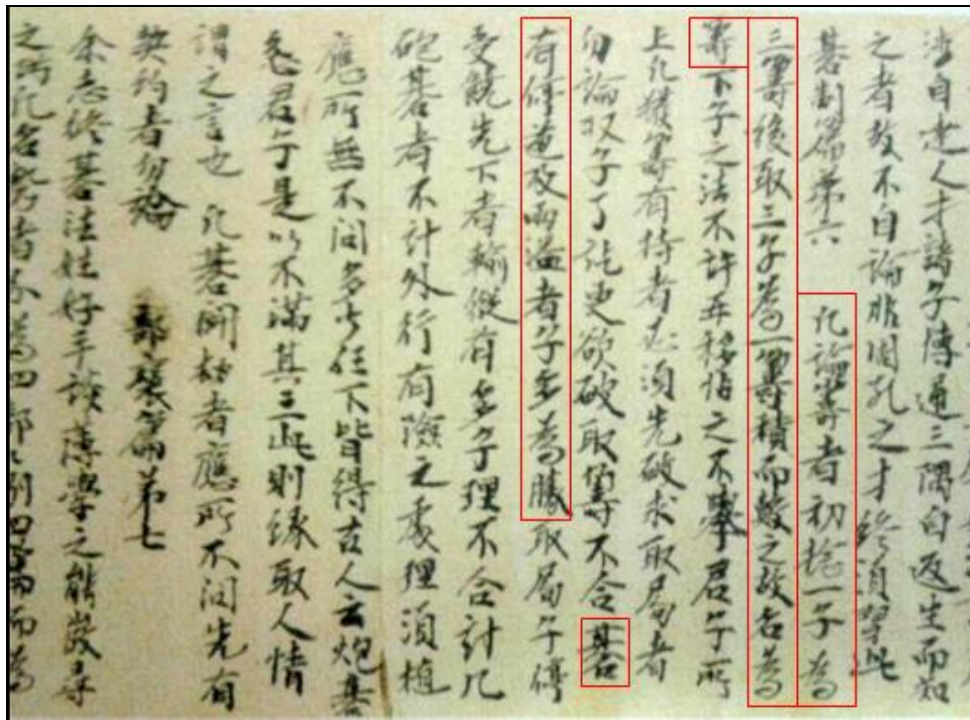 法自走人才諸子傅通三隅自返生而知
之者教不自論非固乳之才終須習此
碁制篇第六　凡論籌者初捻一子為
三籌後取三子為一籌積而數之故名為
籌下子之法不許再移怕之不舉君子所
上凡獲籌有持者必須先破求取局者
勿論収子了訖更欲破取籌不合碁
有停道及兩溢者子多為勝取局子停
受饒先下者輸縱有多子理不合計凡
砲碁者不計外行有險之處理須植
應所無不問多少任下皆得古人云炮碁
忿君子是以不滿其三此則緣取人情
謂之言也　凡碁鬪劫者應所不問先有
契約者勿論　部襄篇第七
余志修碁法性好手談薄學之能微尋
之巧凡名勢者不為四部部別四篇而為